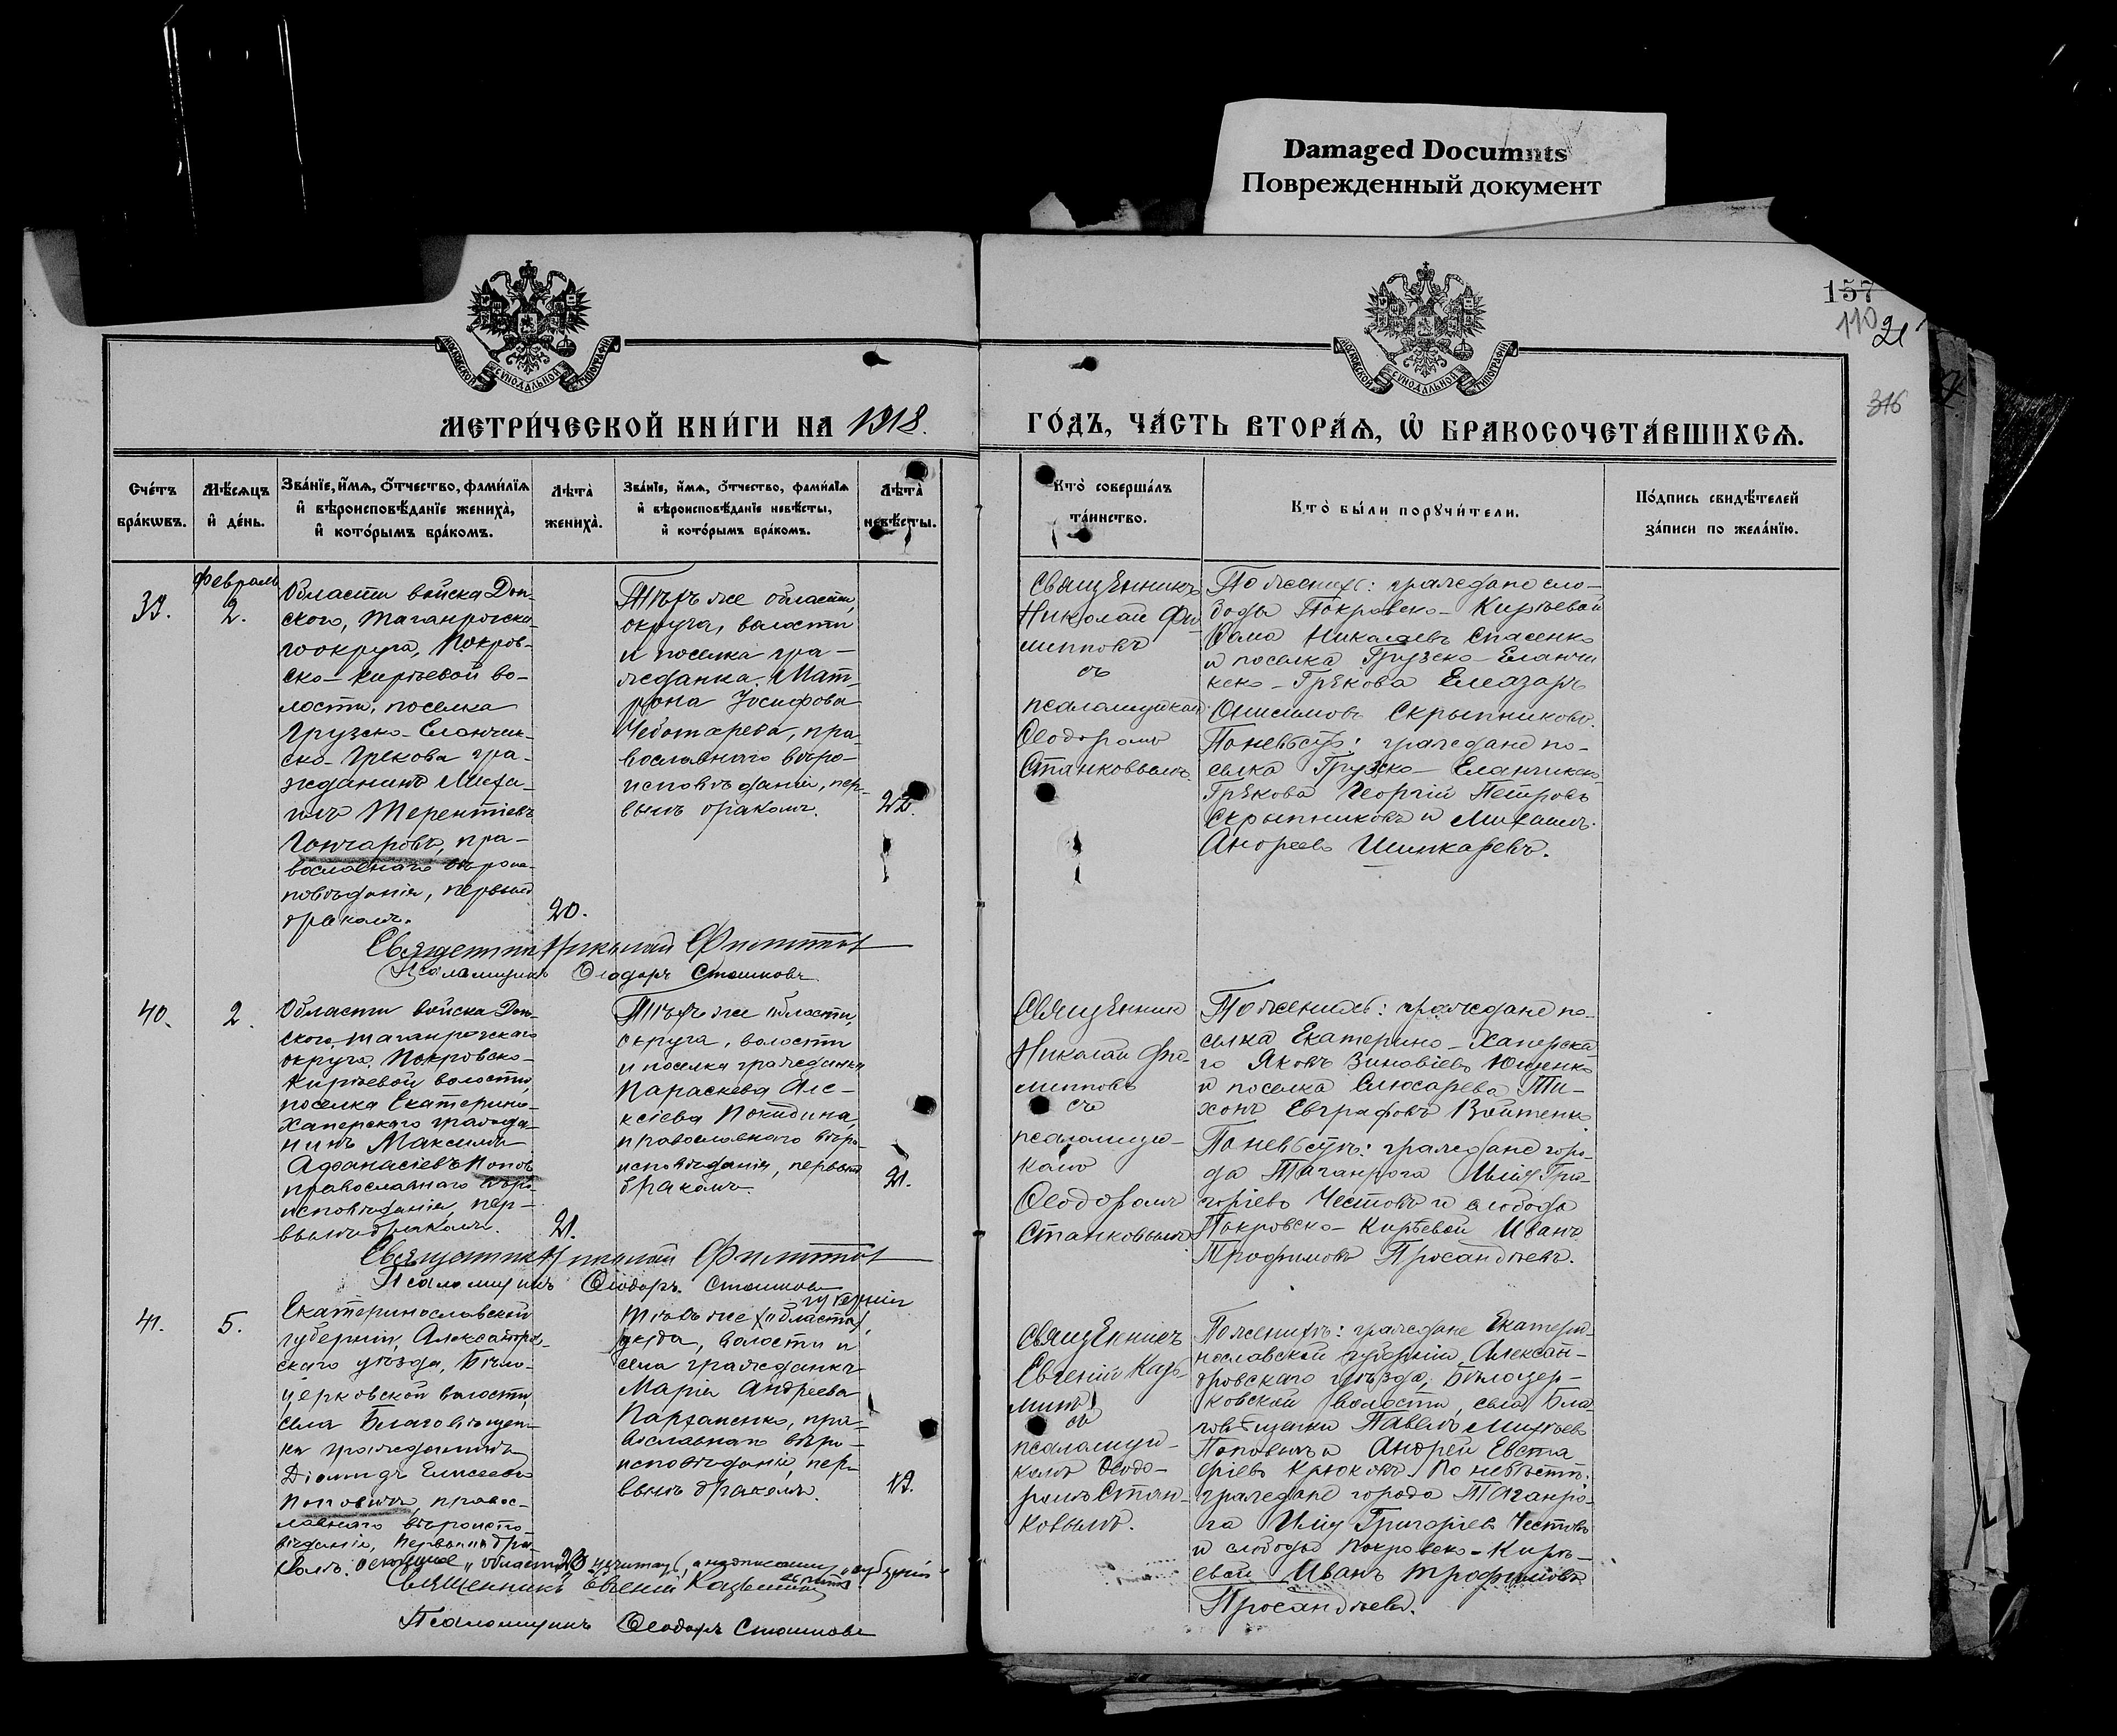 Damaged Documnts
Поврежденный документ
157
110
21
316
МОСКОВСКОЙ СѴНОДАЛЬНОЙ ТИПОГРАФІИ
МОСКОВСКОЙ СѴНОДАЛЬНОЙ ТИПОГРАФІИ
МЕТРИ́ЧЕСКОЙ КНИ́ГИ НА 1918.
ГО́ДЪ, ЧА́СТЬ ВТОРА́Ѧ, Ѽ БРАКОСОЧЕТА́ВШИХСѦ.
Сче́тъ
бра́кѡвъ.
Мѣ́сѧцъ
и҆ де́нь.
Зва́нїе, и҆́мѧ, ѻ҆́тчество, фами́лїѧ
и҆ вѣроисповѣ́данїе жениха̀,
и҆ кото́рымъ бра́комъ.
Лѣта̀
жениха̀.
Зва́нїе, и҆́мѧ, ѻ҆́тчество, фами́лїѧ
и҆ вѣроисповѣ́данїе невѣ́сты,
и҆ кото́рымъ бра́комъ.
Лѣта̀
невѣ́сты.
Кто̀ соверша́лъ
та́инство.
Кто̀ бы́ли порꙋчи́тели.
По́дпись свидѣ́телей
за́писи по жела́нїю.
39.
Февраль
2.
Области войска Дон-
ского, Таганрогско-
го округа, Покров-
ско-Киріевой во-
лости, поселка
Грузско-Еланчик-
ско-Грекова гра-
жданинъ Миха-
илъ Терентіевъ
Гончаровъ, пра-
вославнаго вѣроис-
повѣданія, первымъ
бракомъ.
20.
Тѣхъ же области,
округа, волости
и поселка гра-
жданка Мат-
рона Іосифова
Чеботарева, пра-
вославнаго вѣро-
исповѣданія, пер-
вымъ бракомъ.
22.
Священникъ
Николай Фи-
липповъ
съ
псаломщикомъ
Ѳеодоромъ
Станковымъ.
По женихѣ: граждане сло-
боды Покровско-Кирѣевой
Савва Николаевъ Спасенко
и поселка Грузско-Еланчи
кско-Грѣкова Елеазаръ
Онисимовъ Скрыпниковъ.
По невѣстѣ: граждане по-
селка Грузско-Еланчикско-
Грѣкова Георгій Петровъ
Скрыпниковъ и Михаилъ
Андреевъ Шинкаревъ.
Священникъ Николай Филипповъ
Псаломщикъ Ѳеодоръ Станковъ
40.
2.
Области войска Дон-
ского, Таганрогскаго
округа, Покровско-
Киріевой волости,
поселка Екатерино-
Хаперскаго гражда-
нинъ Максимъ
Афанасіевъ Поповъ
православнаго вѣро-
исповѣданія, пер-
вымъ бракомъ.
21.
Тѣхъ же области,
округа, волости
и поселка гражданка
Параскева Але-
ксіева Покидина,
православнаго вѣро-
исповѣданія, первымъ
бракомъ.
21.
Священник
Николай Фи-
липповъ
съ
псаломщи-
комъ
Ѳеодоромъ
Станковымъ
По женихѣ: граждане по-
селка Екатерино-Хаперска
го Яковъ Зиновіевъ Ющенко
и поселка Слюсарева Ти-
хонъ Евграфовъ Войтенко
По невѣстѣ: граждане горо-
да Таганрога Илія Гри-
горіевъ Честовъ и слободы
Покровско-Кирѣевой Иванъ
Трофимовъ Просандѣевъ.
Священникъ Николай Филипповъ
Псаломщикъ Ѳеодоръ Станковъ
41.
5.
Екатеринославской
губерніи, Александров-
скаго уѣзда, Бѣло-
церковской волости,
села Благовѣщен-
ки гражданинъ
Діомидъ Елисеевъ
Поповичъ, правос-
лавнаго вѣроиспо-
вѣданія, первымъ бра-
комъ.
губерніи
Тѣхъ же области,
уѣзда, волости и
села гражданка
Марія Андреева
Пархоменко, пра-
вославнаго вѣро-
исповѣданія, пер-
вымъ бракомъ.
19.
Священникъ
Евгеній Казь-
минъ
съ
псаломщи-
комъ Ѳеодо-
ромъ Стан-
ковымъ.
По женихѣ: граждане Екатери-
нославской губерніи, Алексан-
дровскаго уѣзда, Бѣлоцер-
ковской волости, села Бла
говѣщенки Павелъ Михѣевъ
Поповичъ и Андрей Евста
фіевъ Крюковъ. По невѣстѣ:
граждане города Таганро-
га Илія Григоріевъ Честовъ
и слободы Покровско-Кирѣ-
евой Иванъ Трофимовъ
Просандѣевъ.
Священникъ Евгеній Казьминъ
Псаломщикъ Ѳеодоръ Станковъ